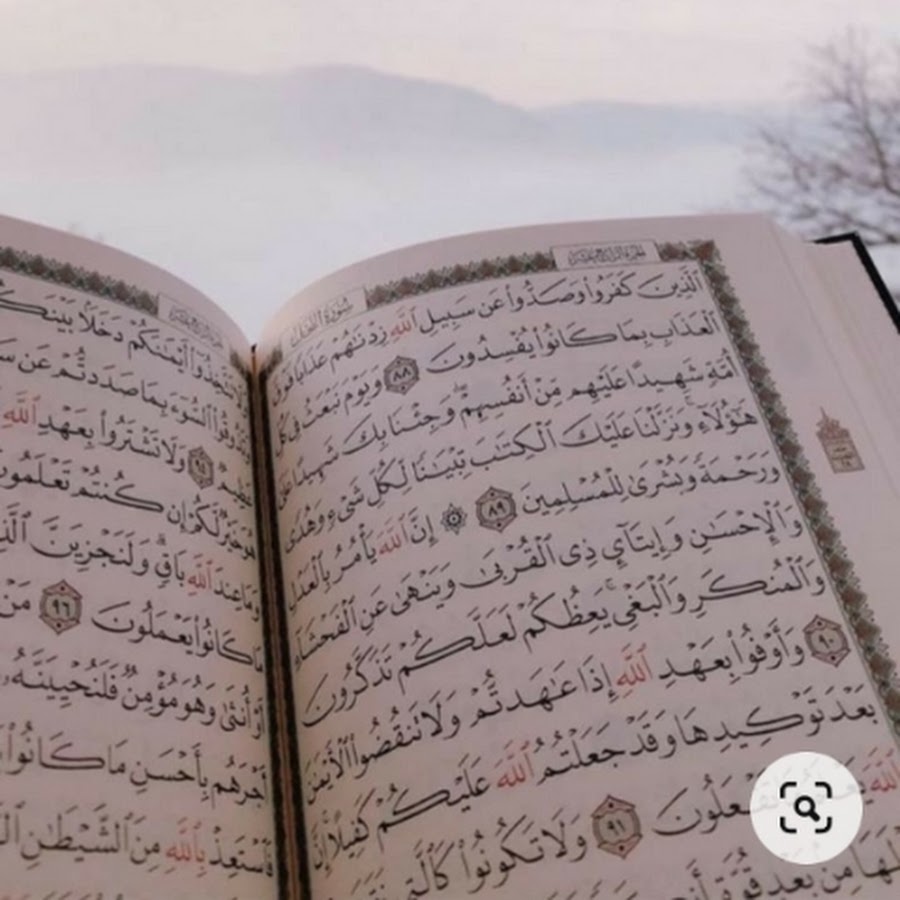 سورة النحل
الَّذِينَ كَفَرُوا۟ وَصَدُّوا۟ عَن سَبِيلِ ٱللَّهِ زِدْنَٰهُمْ عَذَابًا فَوْقَ
ٱلْعَذَابِ بِمَا كَانُوا۟ يُفْسِدُونَ ٨٨ وَيَوْمَ نَبْعَثُ فِى كُلِّ
أُمَّةٍ شَهِيدًا عَلَيْهِم مِّنْ أَنفُسِهِمْ وَجِئْنَا بِكَ شَهِيدًا عَلَىٰ
هَٰٓؤُلَآءِ وَنَزَّلْنَا عَلَيْكَ ٱلْكِتَٰبَ تِبْيَٰنًا لِّكُلِّ شَىْءٍ وَهُدًى
وَرَحْمَةً وَبُشْرَىٰ لِلْمُسْلِمِينَ ٨٩ ۞ إِنَّ ٱللَّهَ يَأْمُرُ بِٱلْعَدْلِ
وَٱلْإِحْسَٰنِ وَإِيتَآئِ ذِى ٱلْقُرْبَىٰ وَيَنْهَىٰ عَنِ ٱلْفَحْشَآءِ
وَٱلْمُنكَرِ وَٱلْبَغْىِ يَعِظُكُمْ لَعَلَّكُمْ تَذَكَّرُونَ
٩٠ وَأَوْفُوا۟ بِعَهْدِ ٱللَّهِ إِذَا عَٰهَدتُّمْ وَلَا تَنقُضُوا۟ ٱلْأَيْمَٰنَ
بَعْدَ تَوْكِيدِهَا وَقَدْ جَعَلْتُمُ ٱللَّهَ عَلَيْكُمْ كَفِيلًا إِنَّ
ٱللَّهَ يَعْلَمُ مَا تَفْعَلُونَ ٩١ وَلَا تَكُونُوا۟ كَٱلَّتِى نَقَضَتْ
غَزْلَهَا مِنۢ بَعْدِ قُوَّةٍ
وَلَا تَتَّخِذُوٓا۟ أَيْمَٰنَكُمْ دَخَلًۢا بَيْنَكُمْ
وَتَذُوقُوا۟ ٱلسُّوٓءَ بِمَا صَدَدتُّمْ عَن
عَظِيمٌ ٩٤ وَلَا تَشْتَرُوا۟ بِعَهْدِ ٱللَّهِ
هُوَ خَيْرٌ لَّكُمْ إِن كُنتُمْ تَعْلَمُونَ
وَمَا عِندَ ٱللَّهِ بَاقٍ وَلَنَجْزِيَنَّ ٱلَّذِينَ
مَا كَانُوا۟ يَعْمَلُونَ ٩٦ مَنْ
أَوْ أُنثَىٰ وَهُوَ مُؤْمِنٌ فَلَنُحْيِيَنَّهُۥ
أَجْرَهُم بِأَحْسَنِ مَا كَانُوا۟
فَٱسْتَعِذْ بِٱللَّهِ مِنَ ٱلشَّيْطَٰنِ